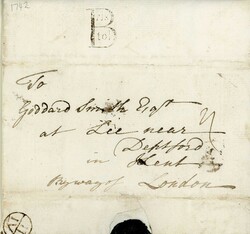 1762
B
To
Goddard Smith Esqr
at Lee near
Deptford
in Kent
By way of London